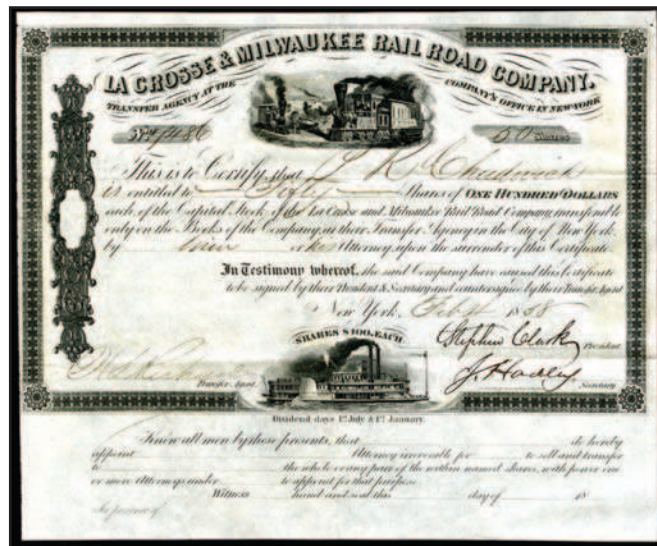 LA CROSSE & MILWAUKEE RAIL ROAD COMPANY.
TRANSFER AGENCY AT THE COMPANY'S OFFICE IN NEW YORK
No. 1486 50 Shares
This is to Certify, that J R Chadwick
is entitled to Fifty Shares of ONE HUNDRED DOLLARS
each, of the Capital Stock of the La Crosse and Milwaukee Rail Road Company, transferable
only on the Books of the Company, at their Transfer Agency in the City of New York
by him or his Attorney, upon the surrender of this Certificate.
In Testimony whereof, the said Company have caused this Certificate
to be signed by their President & Secretary and countersigned by their Transfer Agent
New York, Feb 4 1858
SHARES $100. EACH
Stephen Clark President
Transfer Agent. Secretary
Dividend days 1st. July & 1st. January.
Know all men by these presents, that do hereby
appoint Attorney irrevocable for to sell and transfer
to the whole or any part of the within named shares, with power one
or more Attorneys under to appoint for that purpose
Witness hand and seal this day of 18
In presence of